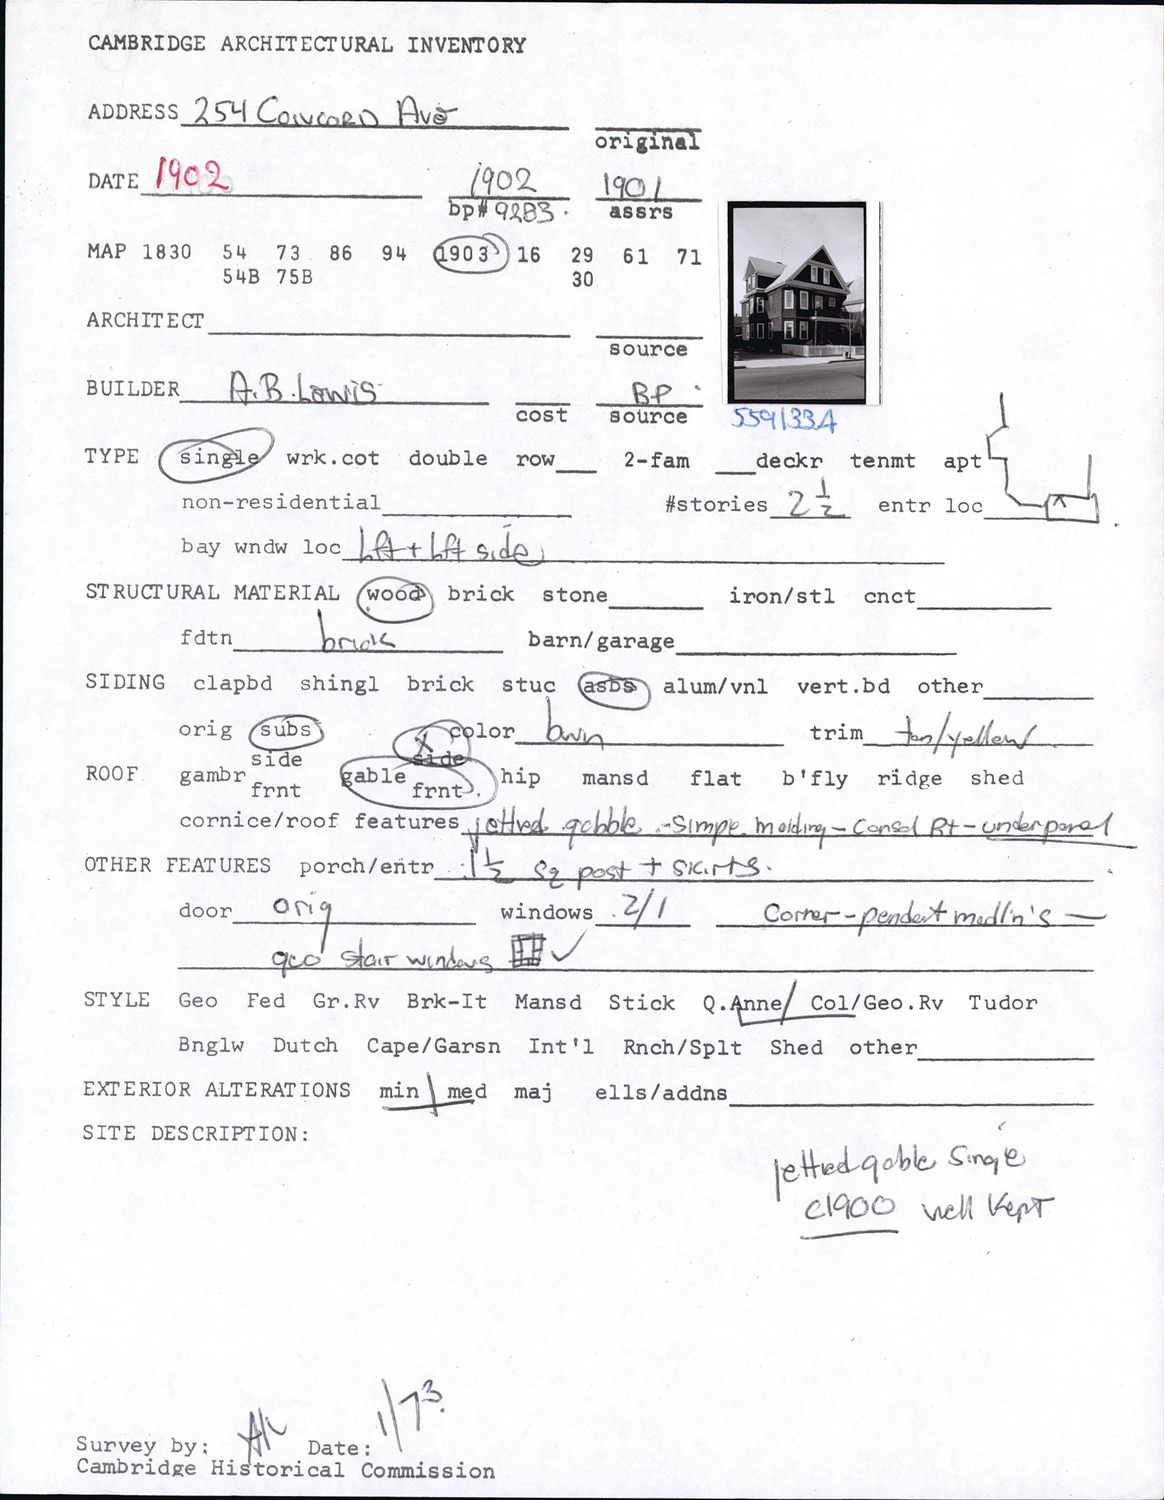 CAMBRIDGE ARCHITECTURAL INVENTORY
ADDRESS 254 Concord Ave
original
DATE 1902 1902 1901
bp# 9283. assrs
MAP 1830 54 73 86 94 1903 16 29 61 71
54B 75B 30
ARCHITECT
source
BUILDER A.B. Lewis BP
cost source
559133A
TYPE single wrk.cot double row 2-fam deckr tenmt apt
non-residential #stories 2 1/2 entr loc
bay wndw loc lft + lft side
STRUCTURAL MATERIAL wood brick stone iron/stl cnct
fdtn brick barn/garage
SIDING clapbd shingl brick stuc asbs alum/vnl vert.bd other
orig subs color brwn trim tan/yellow
side side
ROOF gambr gable hip mansd flat b'fly ridge shed
frnt frnt
cornice/roof features jettied gabble - Simple molding - Consol Rt - underpanel
OTHER FEATURES porch/entr 1 1/2 Sq post + skirts.
door orig windows 2/1 Corner-pendent medln's
geo stair windows ✓
STYLE Geo Fed Gr.Rv Brk-It Mansd Stick Q.Anne/ Col/Geo.Rv Tudor
Bnglw Dutch Cape/Garsn Int'l Rnch/Splt Shed other
EXTERIOR ALTERATIONS min med maj ells/addns
SITE DESCRIPTION:
jettied gable Single
c1900 well Kept
Survey by: Date: 1/73
Cambridge Historical Commission